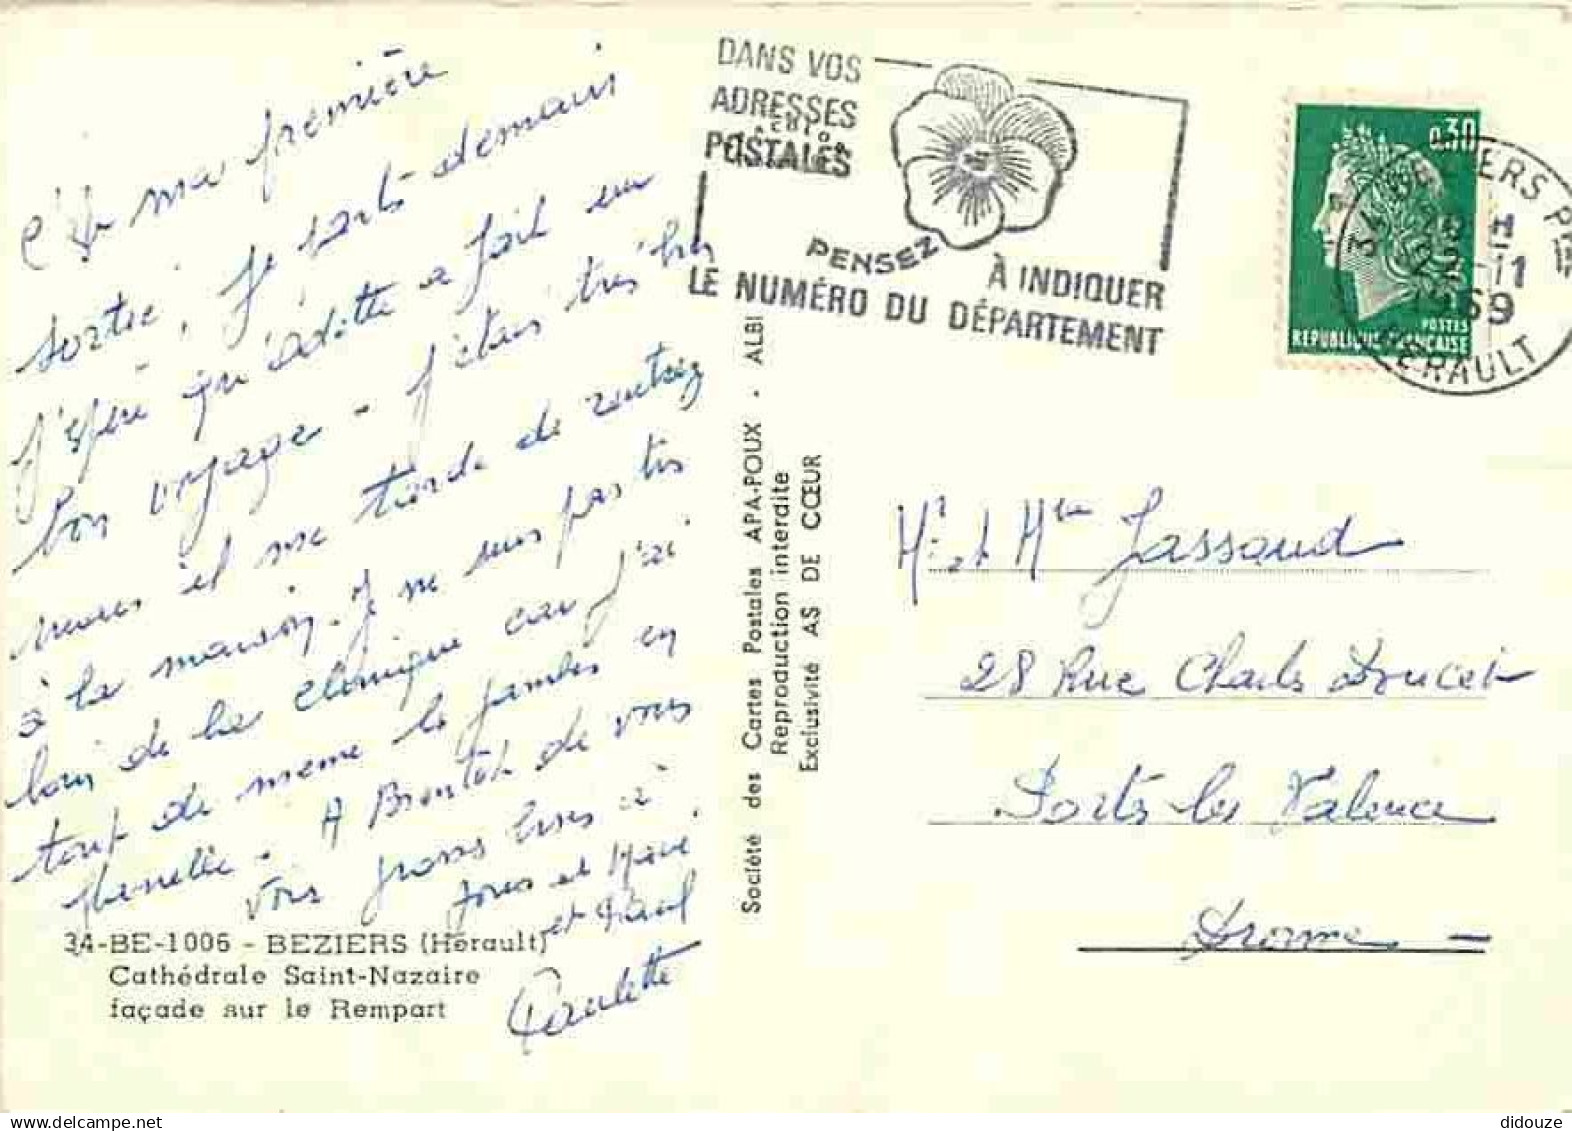 C'est ma première
sortie, Je sors demain
J'espère qu'Odette a fait un
bon voyage - J'étais très bas
mais il me tarde de rentrer
à la maison. Je ne suis pas très
loin de la clinique car j'ai
tout de même les jambes en
flanelle. A Bientôt de vous
Vous gros bises à
et Paul
Paulette
34-BE-1006 - BEZIERS (Hérault)
Cathédrale Saint-Nazaire
façade sur le Rempart
Société des Cartes Postales APA-POUX - ALBI
Reproduction interdite
Exclusivité AS DE CŒUR
DANS VOS
ADRESSES
POSTALES
PENSEZ
À INDIQUER
LE NUMÉRO DU DÉPARTEMENT
0,30
POSTES
REPUBLIQUE FRANÇAISE
34 BEZIERS Pal
-11
1969
HERAULT
Mr et Mme Jassoud
28 Rue Charles Doucet
Ports les Valence
Drome
didouze